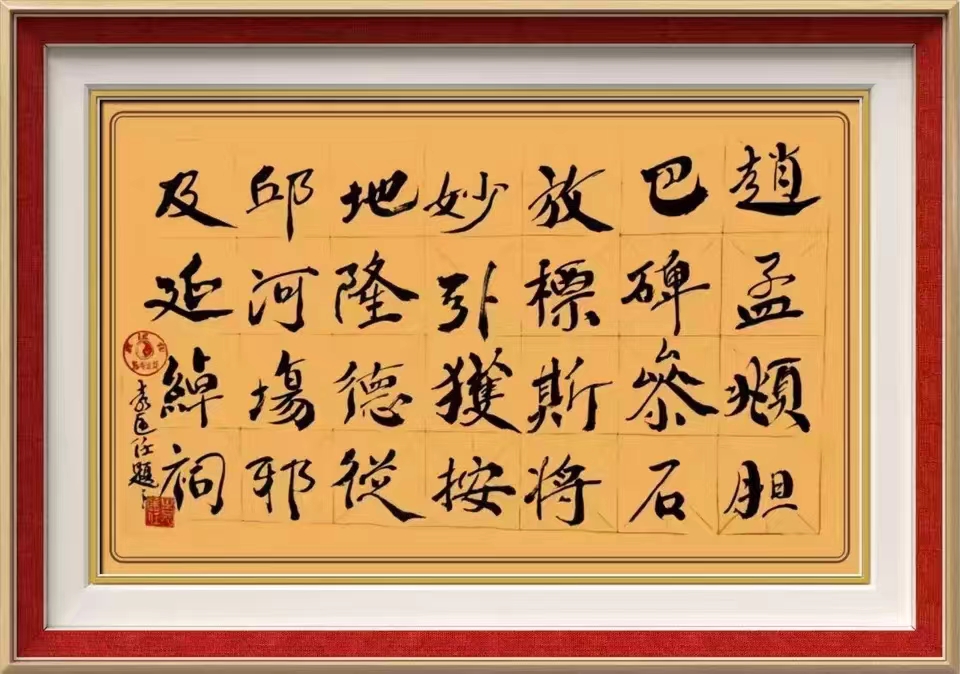 趙孟頫胆
巴碑叅石
放標斯将
妙引獲按
地隆德從
邱河場邪
及延綽祠
题